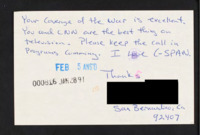 Your Coverage of the War is excellent.
You and CNN are the best thing on
television. Please keep the call in
Programs Comming. I love C-SPAN.
FEB 5 ANTD
Thanks
San Bernardino, Ca
92407